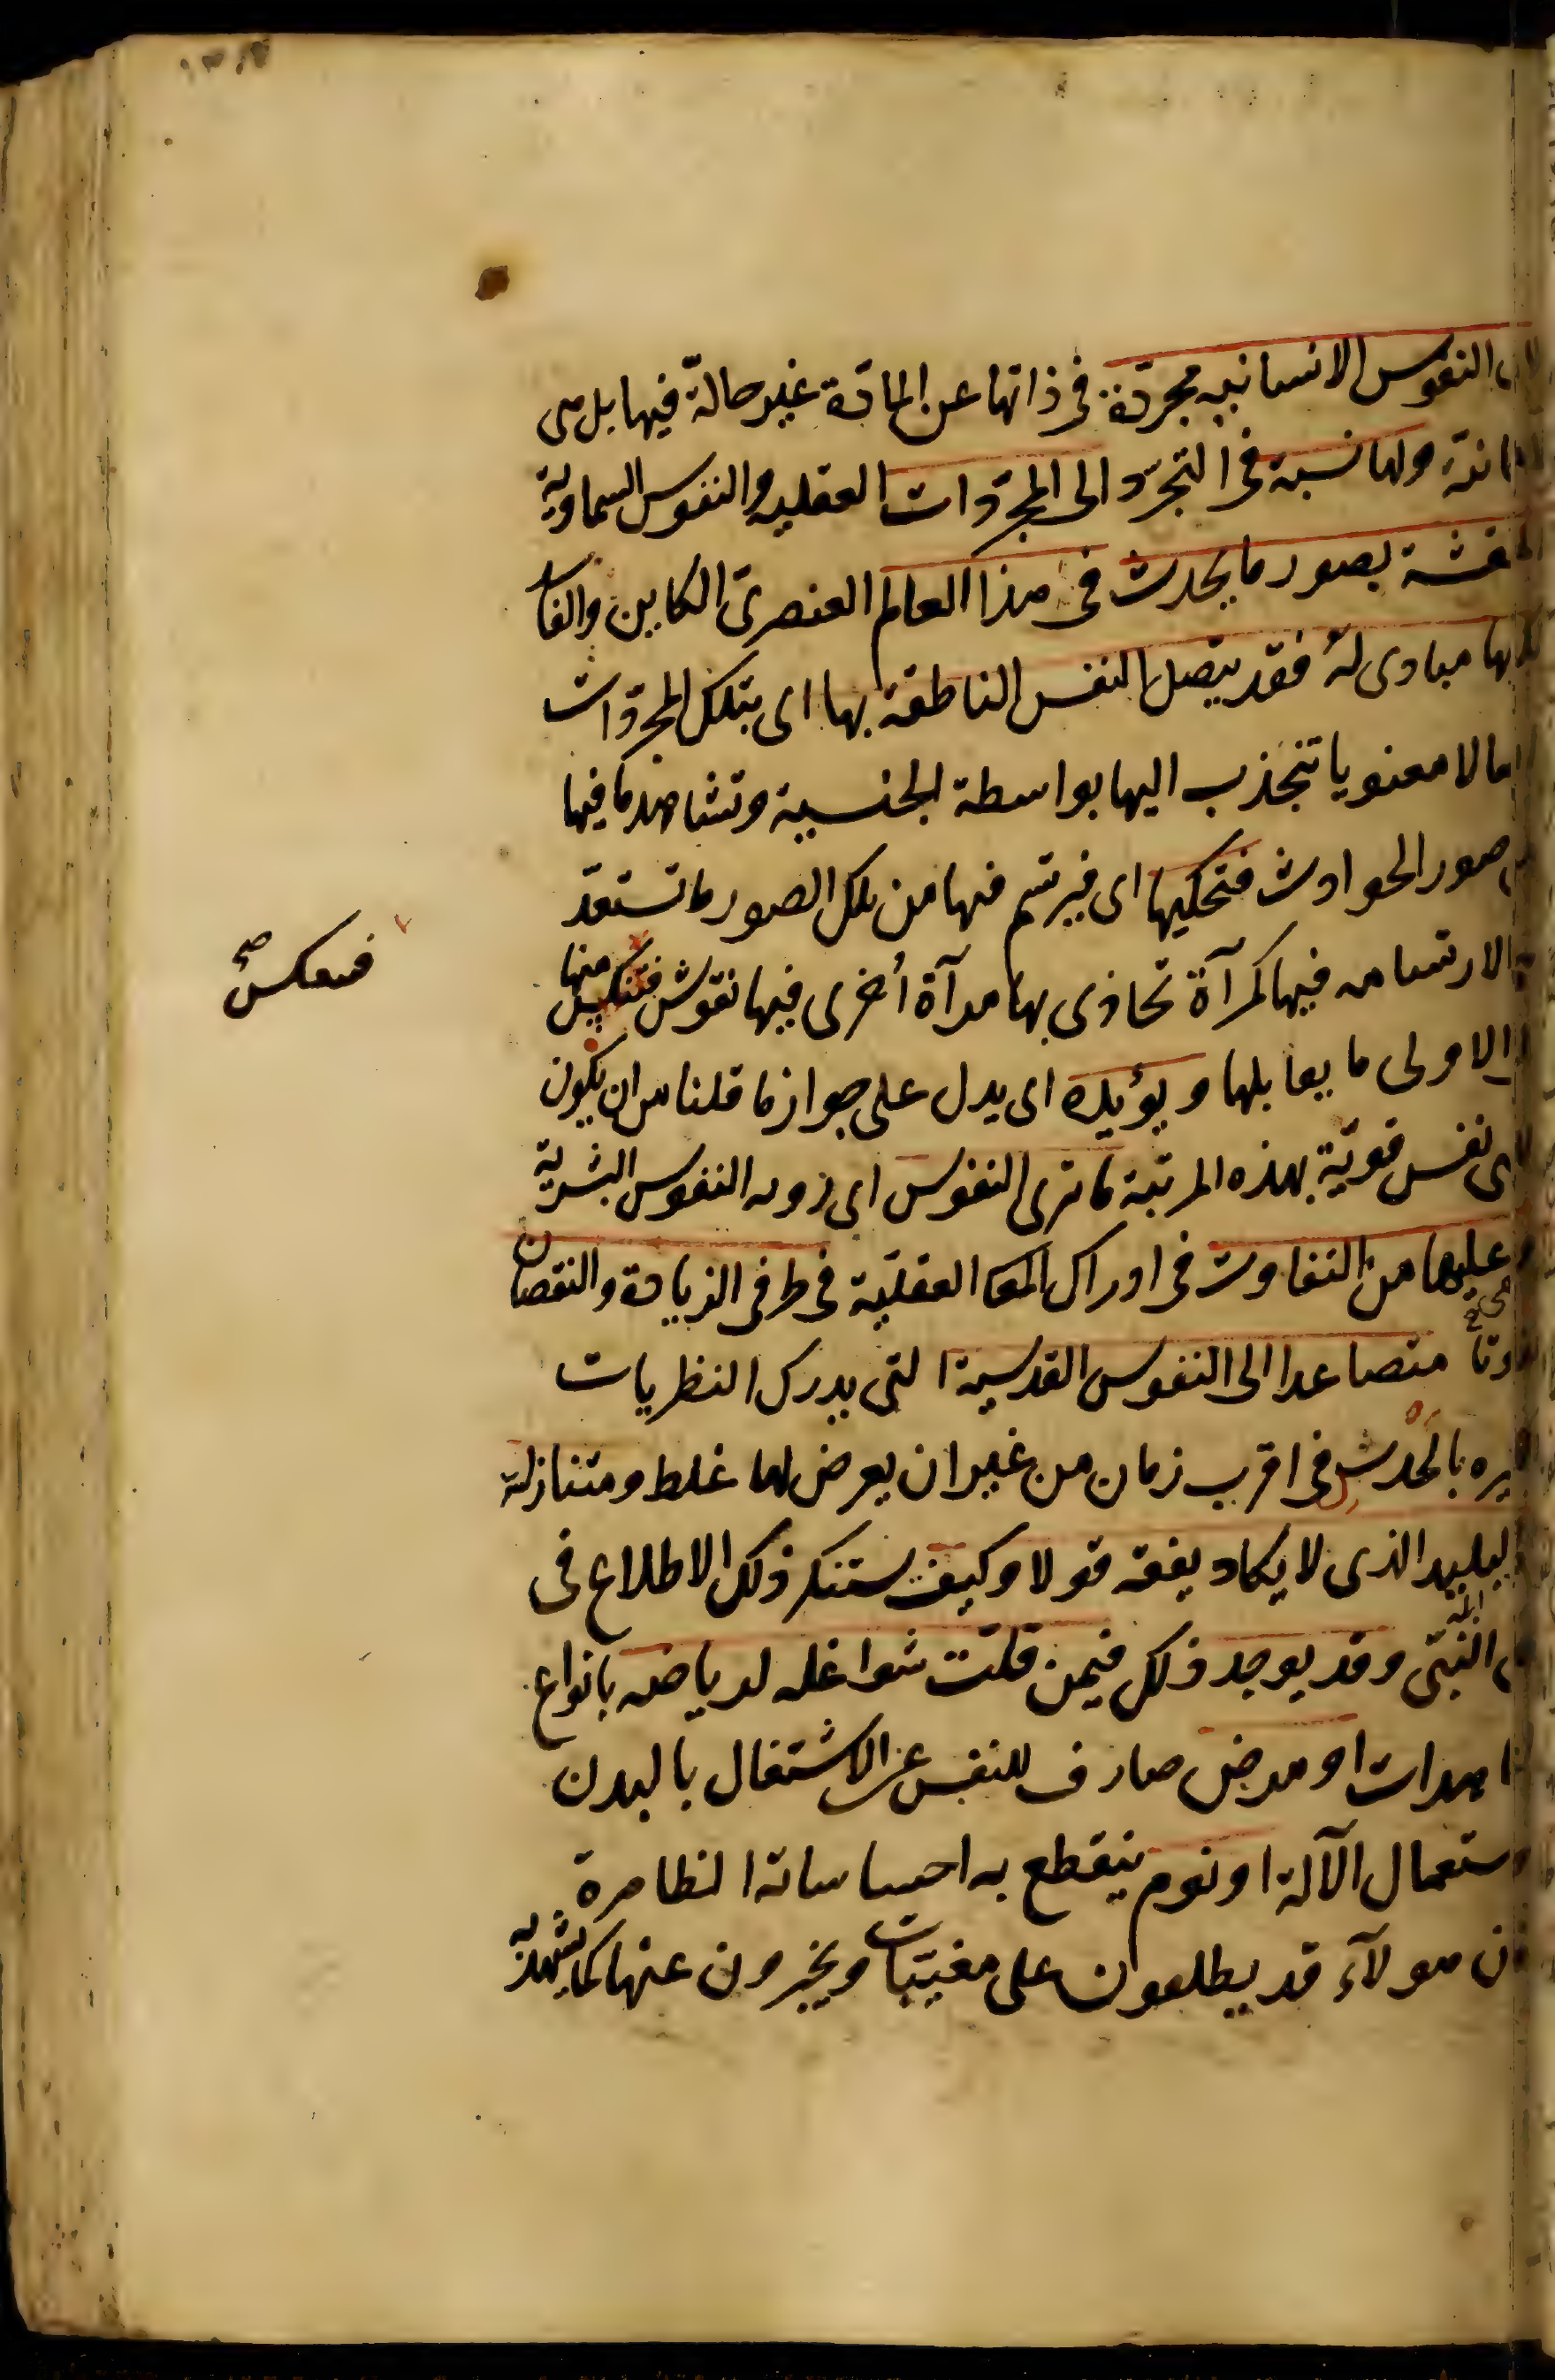 النفوس الانسانيه مجردة في ذاتها عن المادة غير حالة فيها بل هى
ولها نسبة في التجرد الى المجردات العقليه والنفوس السماوية
بصور ما يحدث فى هذا العالم العنصرى الكاين والفا
مبادى له فقد يتصل النفس الناطقة بها اى بتلك المجردات
معنويا تنجذب اليها بواسطة الجنسية وتشاهد ما فيها
صور الحوادث فتحكيها اى فيرتسم فيها من تلك الصور ما تستعد
لارتسامه فيها كمرآة تحاذى بها مرآة أخرى فيها نقوش منها
فينعكس صح
الاولى ما يقابلها ويؤيده اى يدل على جواز ما قلنا من ان يكون
نفس قوية بهذه المرتبة ما ترى النفوس اى رؤية النفوس البشرية
عليها من التفاوت فى ادراك المعا العقلية فى طرفى الزيادة والنقصان
متصاعدا الى النفوس القدسية التى يدرك النظريات
بالحدس فى اقرب زمان من غير ان يعرض لها غلط ومتنازلة
البليد الذى لا يكاد يفقه قولا وكيف يستنكر ذلك الاطلاع فى
النبى وقد يوجد ذلك فيمن قلت شواغله لرياضة بانواع
او مرض صارف للنفس عن الاشتغال بالبدن
واستعمال الآلة او نوم ينقطع به احساساته الظاهرة
هولاء قد يطلعون على مغيبات ويخبرون عنها كما يشهد به